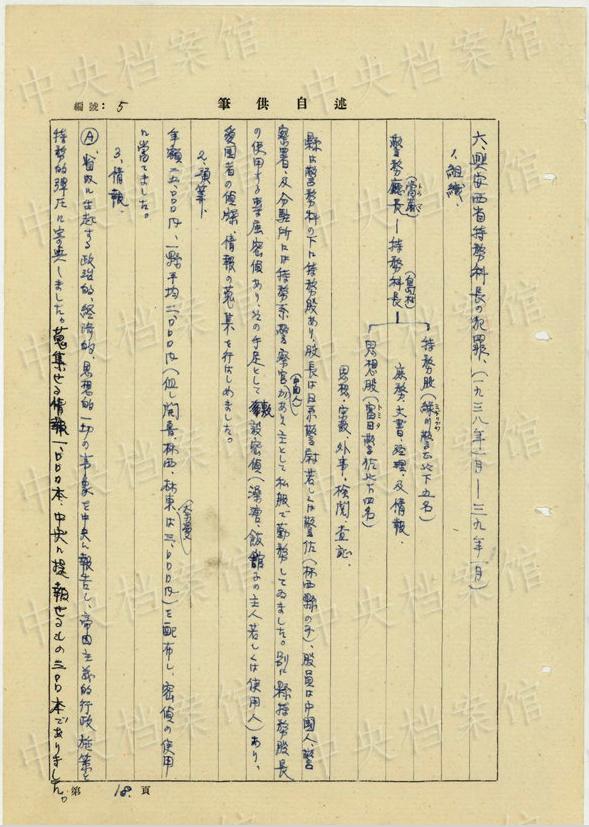 編號：5
述自供筆
六、興安西省特務科長の犯罪、（一九三八年一月―三九年一月）
1. 組織.
警務廳長―特務科長
（島村）
特務股（警佐以下五名）
庶務、文書、経理、及情報.
思想股（富田警佐以下四名）
トミタ
思想、宗教、外事、検閲、査証.
縣は警務科の下に特務股あり、股長は日系警尉若しくは警佐（林西縣のみ）、股員は中國人、警
察署、及分駐所には特務系警察官があり主として私服で勤務してゐました。別に縣特務股長
（中国人）
の使用する専属密偵あり、その手足として数設密偵（澡塘、飯館子の主人若しくは使用人）あり、
愛国者の偵察、情報の蒐集を行はしめました。
2. 預算、
年額二五、〇〇〇円、一縣平均二、〇〇〇円（但し開魯、林西、林東は三、〇〇〇円）を配布し、密偵の使用
に當てました。
3. 情報.
Ⓐ、省内に生起する政治的、経済的、思想的一切の事象を中央に報告し、帝国主義的行政施策と
特務的弾圧に寄與しました。蒐集せる情報一、〇〇〇本、中央に提報せるもの三〇〇本でありました。
第 18. 頁
中央档案馆